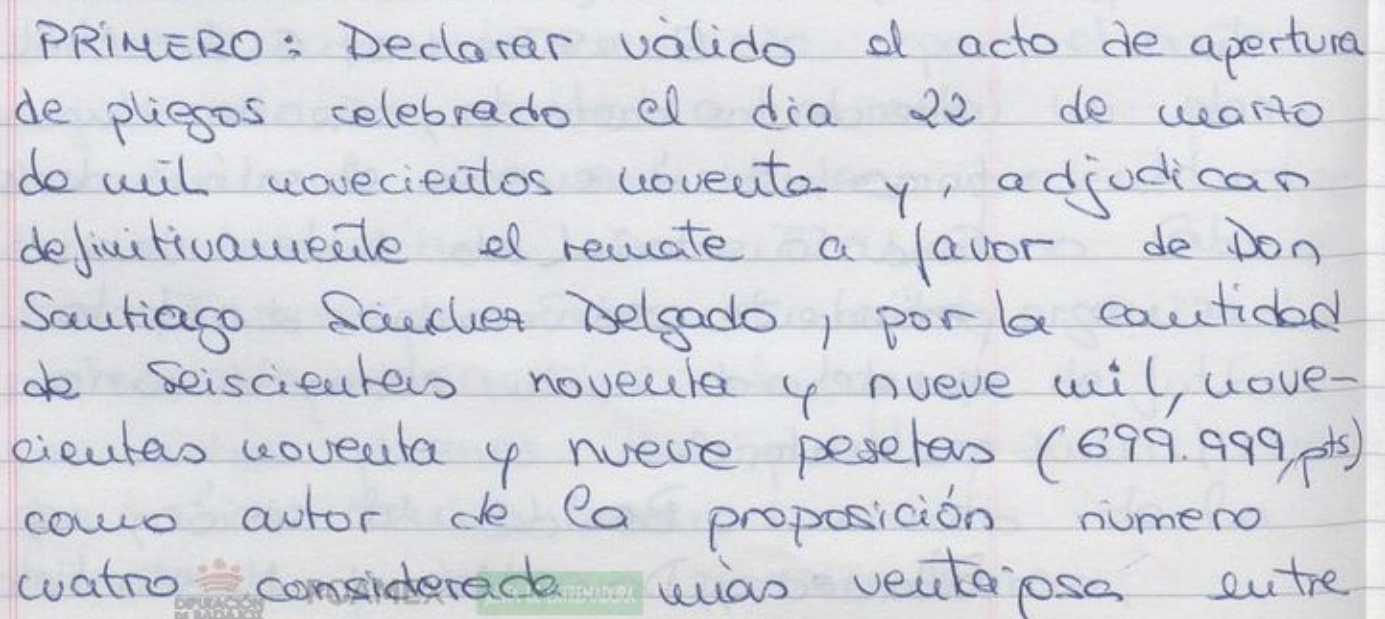 PRIMERO: Declarar válido el acto de apertura
de pliegos celebrado el dia 22 de marzo
de mil novecientos noventa y, adjudicar
definitivamente el remate a favor de Don
Santiago Sanchez Delgado, por la cantidad
de Seiscientas noventa y nueve mil, nove-
cientas noventa y nueve pesetas (699.999,pts)
como autor de la proposición número
cuatro considerada más ventajosa entre
DIPUTACIÓN
DE BADAJOZ